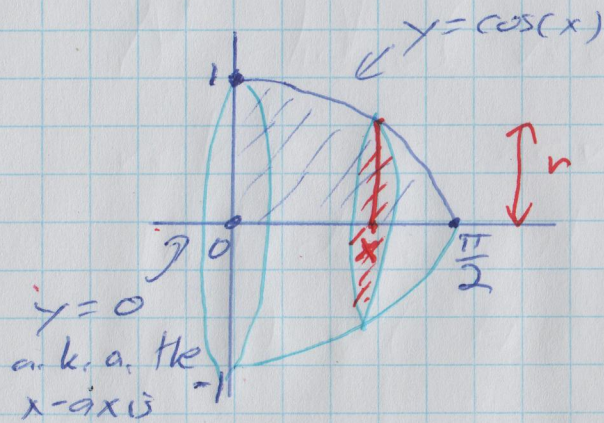 y = cos(x)
1
r
0
x
π/2
y = 0
a.k.a. the
x-axis
-1